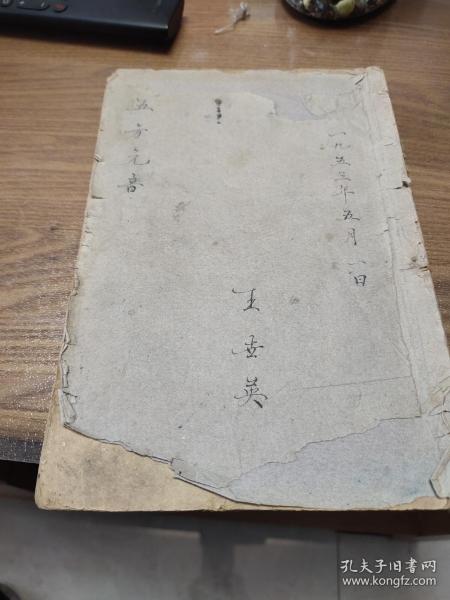 一九五三年五月八日
王世英
孔夫子旧书网
www.kongfz.com